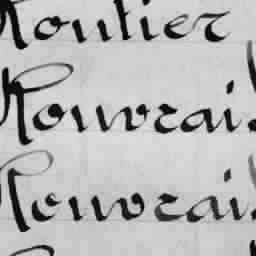 Routier
Rouvrai
Rouvrai